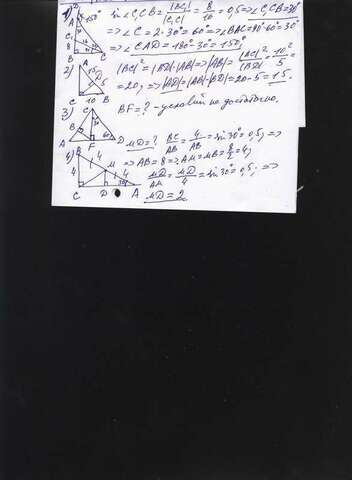 1) sin∠C₁CB = |BC₁|/|C₁C| = 8/16 = 0,5 ⇒ ∠C₁CB = 30°
⇒ ∠C = 2·30° = 60° ⇒ ∠BAC = 90°-60° = 30°
⇒ ∠CAD = 180°-30° = 150°
2) |BC|² = |BD|·|AB| ⇒ |AB| = |BC|²/|BD| = 10²/5 =
= 20, ⇒ |AD| = |AB|-|BD| = 20-5 = 15.
3) BF = ? - условий не достаточно.
4) MD = ? BC/AB = 4/AB = sin30° = 0,5; ⇒
⇒ AB = 8 ⇒ AM = MB = 8/2 = 4;
MD/AM = MD/4 = sin30° = 0,5; ⇒
MD = 2